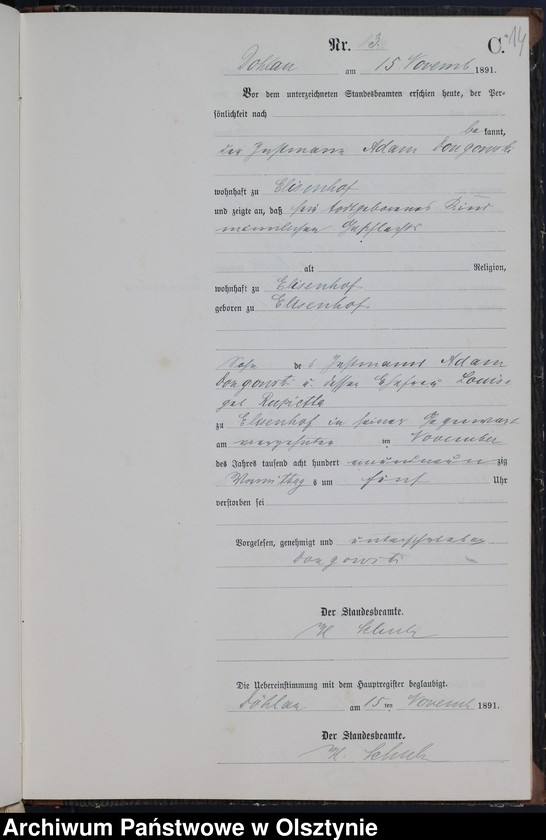 Nr. 13. C. 14
Döhlau am 15 Novemb 1891.
Vor dem unterzeichneten Standesbeamten erschien heute, der Per-
sönlichkeit nach
be kannt,
der Instmann Adam Dongowski
wohnhaft zu Elisenhof
und zeigte an, daß sein todtgeborenes Kind
männlichen Geschlechts
alt Religion,
wohnhaft zu Elisenhof
geboren zu Elisenhof
Sohn des Instmanns Adam
Dongowski u. dessen Ehefrau Louise
geb
zu Elisenhof in seiner Gegenwart
am vierzehnten ten November
des Jahres tausend acht hundert einundneun zig
Vormittag s um fünf Uhr
verstorben sei
Vorgelesen, genehmigt und unterschrieben
Dongowski
Der Standesbeamte.
H Schulz
Die Uebereinstimmung mit dem Hauptregister beglaubigt.
Döhlau am 15 ten Novemb 1891.
Der Standesbeamte.
H. Schulz
Archiwum Państwowe w Olsztynie